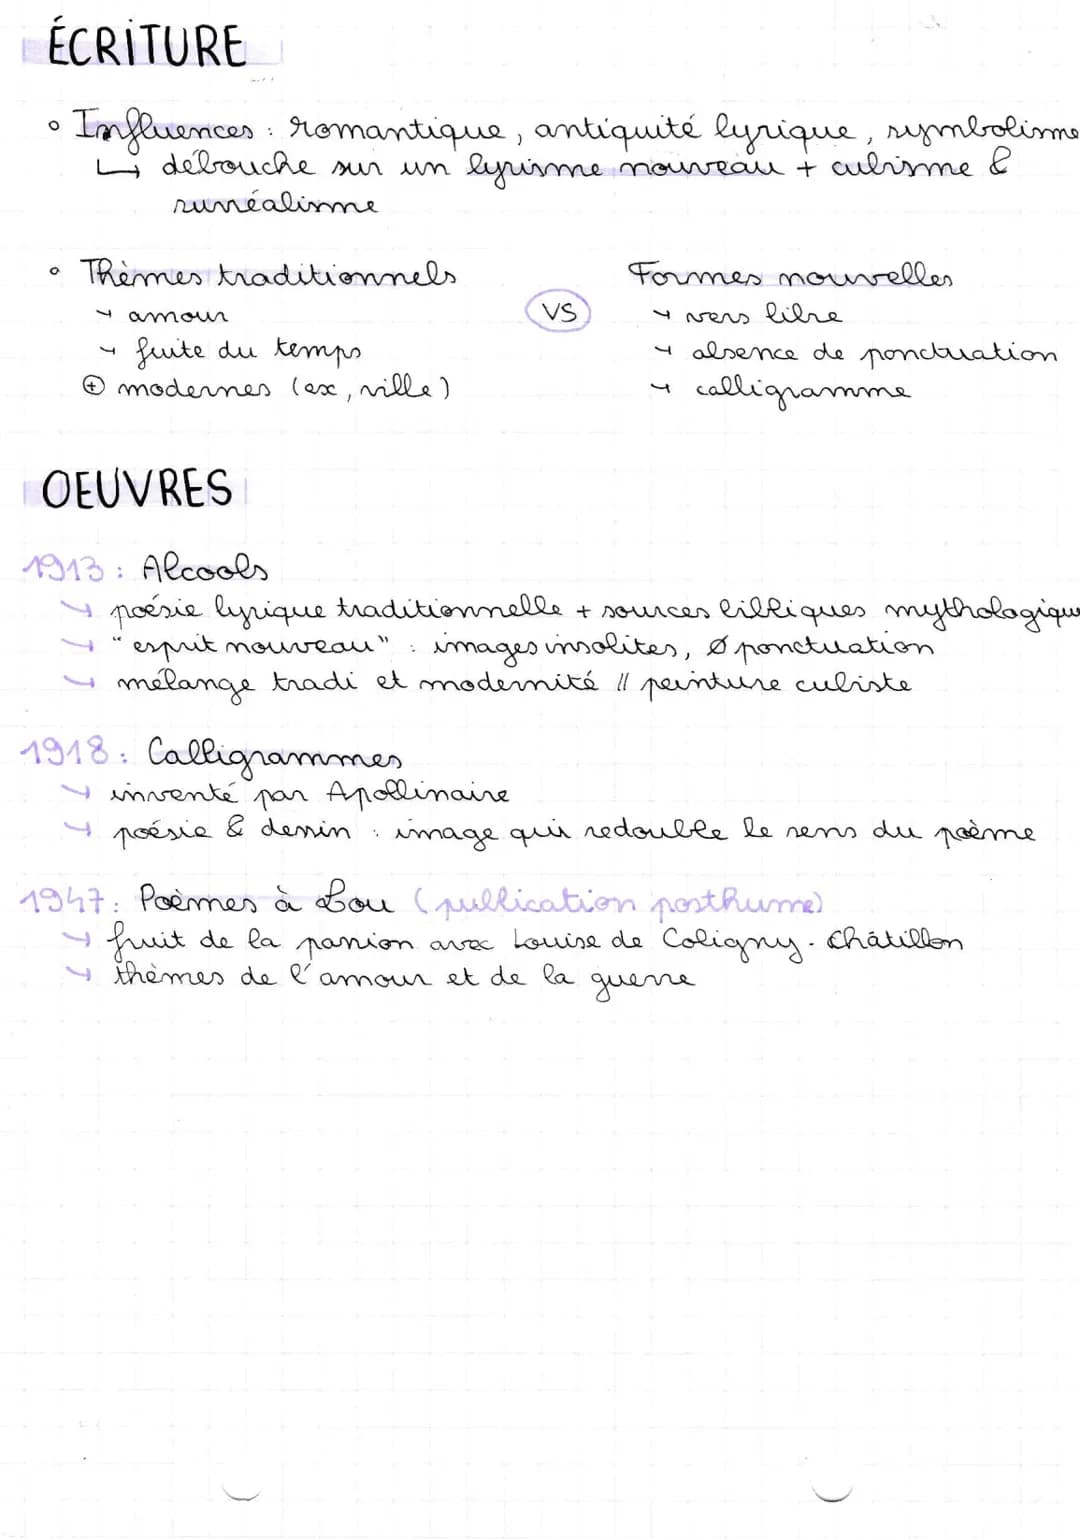 ÉCRITURE
° Influences : romantique, antiquité lyrique, symbolisme
↳ débouche sur un lyrisme nouveau + cubisme &
surréalisme
° Thèmes traditionnels
→ amour
→ fuite du temps
⊕ modernes (ex, ville)
VS
Formes nouvelles
→ vers libre
→ absence de ponctuation
→ calligramme
OEUVRES
1913 : Alcools
→ poésie lyrique traditionnelle + sources bibliques mythologique
→ "esprit nouveau" : images insolites, Ø ponctuation
→ mélange tradi et modernité // peinture cubiste
1918 : Calligrammes
→ inventé par Apollinaire
→ poésie & dessin : image qui redouble le sens du poème
1947 : Poèmes à Lou (publication posthume)
→ fruit de la passion avec Louise de Coligny-Châtillon
→ thèmes de l'amour et de la guerre